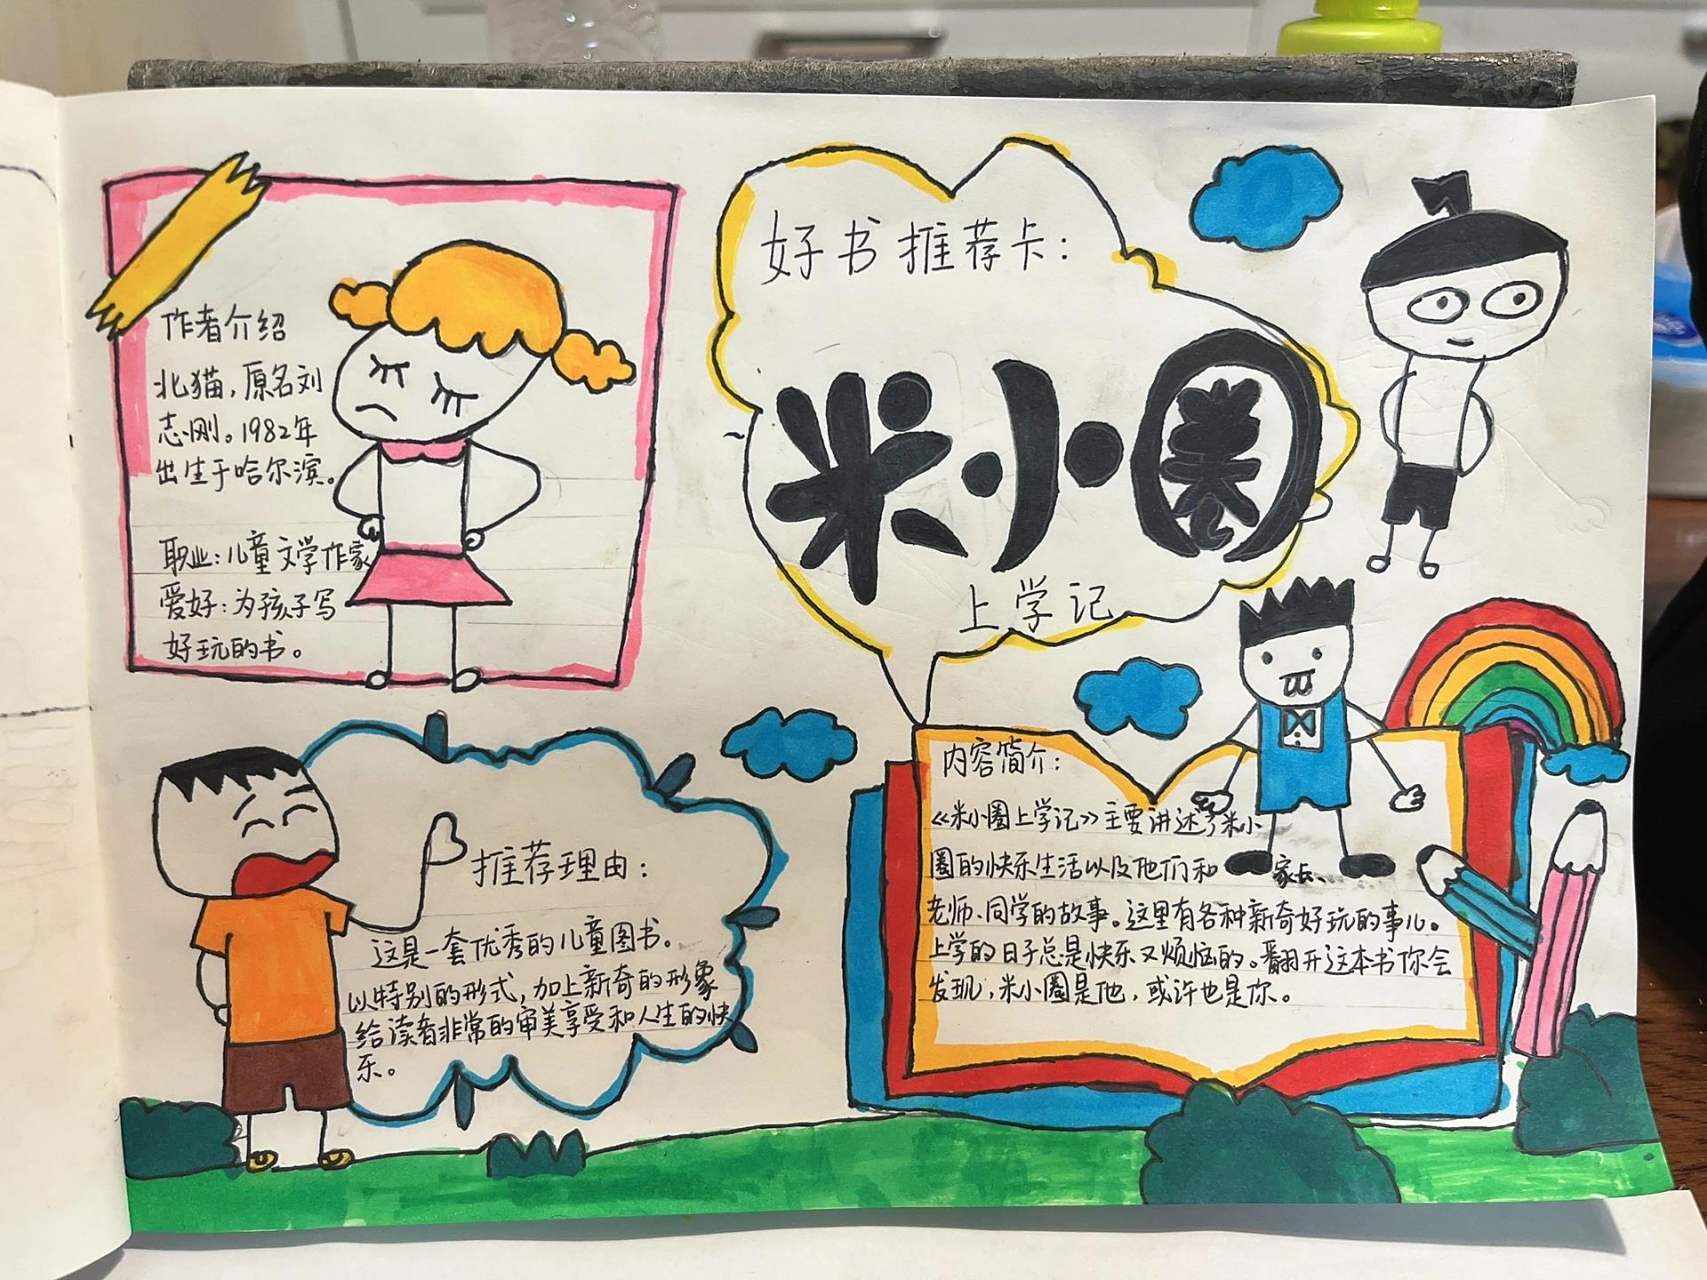 好书推荐卡：
米小圈
上学记
作者介绍
北猫，原名刘
志刚。1982年
出生于哈尔滨。
职业：儿童文学作家
爱好：为孩子写
好玩的书。
推荐理由：
这是一套优秀的儿童图书。
以特别的形式，加上新奇的形象
给读者非常的审美享受和人生的快
乐。
内容简介：
《米小圈上学记》主要讲述了米小
圈的快乐生活以及他们和家长、
老师、同学的故事。这里有各种新奇好玩的事儿。
上学的日子总是快乐又烦恼的。翻开这本书你会
发现，米小圈是他，或许也是你。